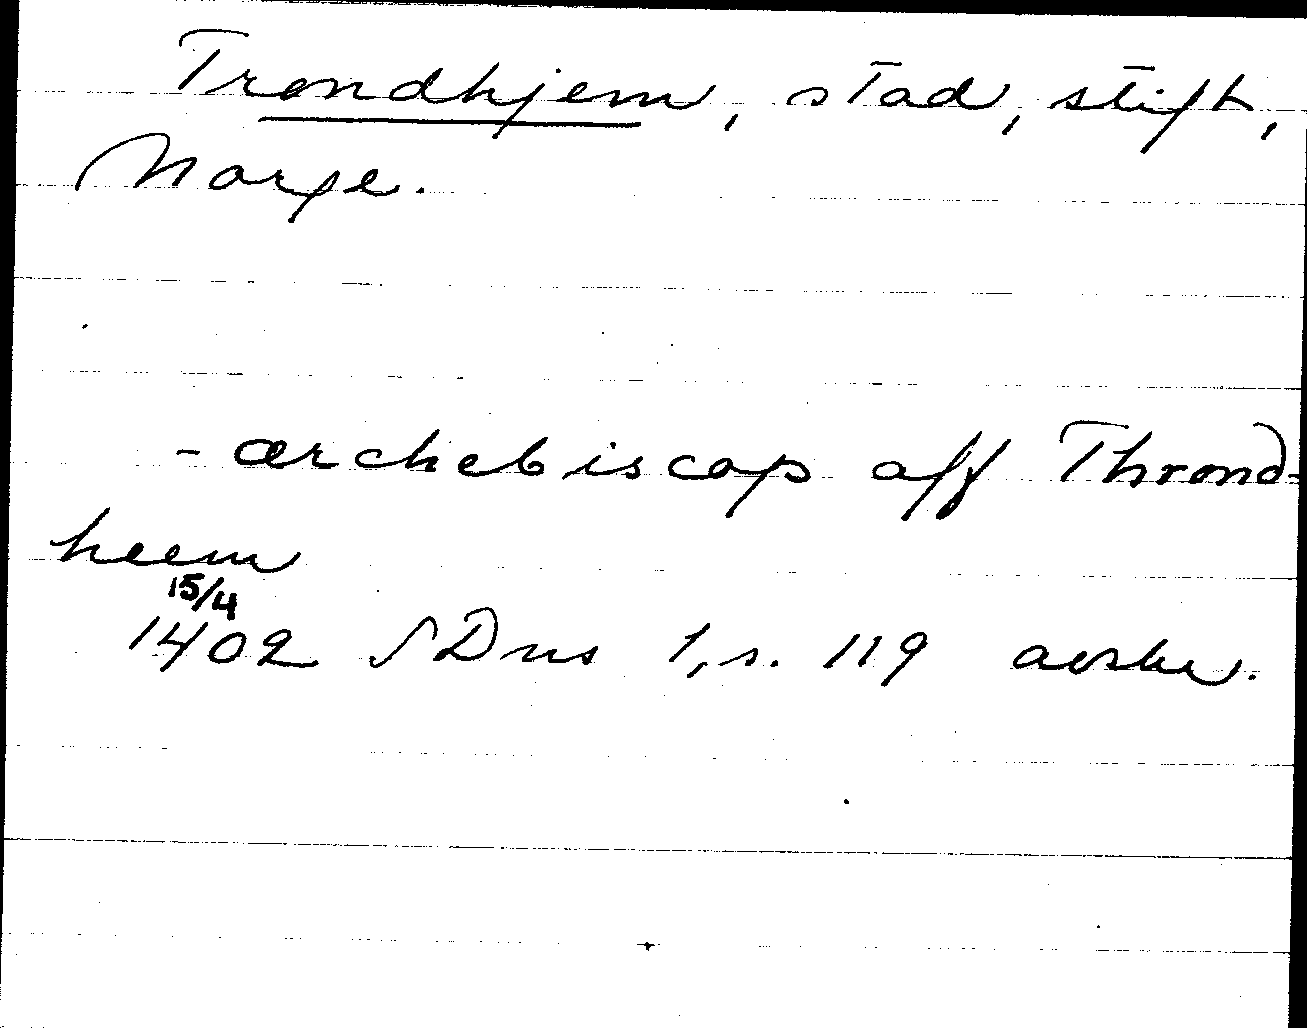 Trondhjem, stad, stift,
Norge.
- ærchebiscop aff Thrond-
heem
15/4
1402 SDns 1, s. 119 avskr.